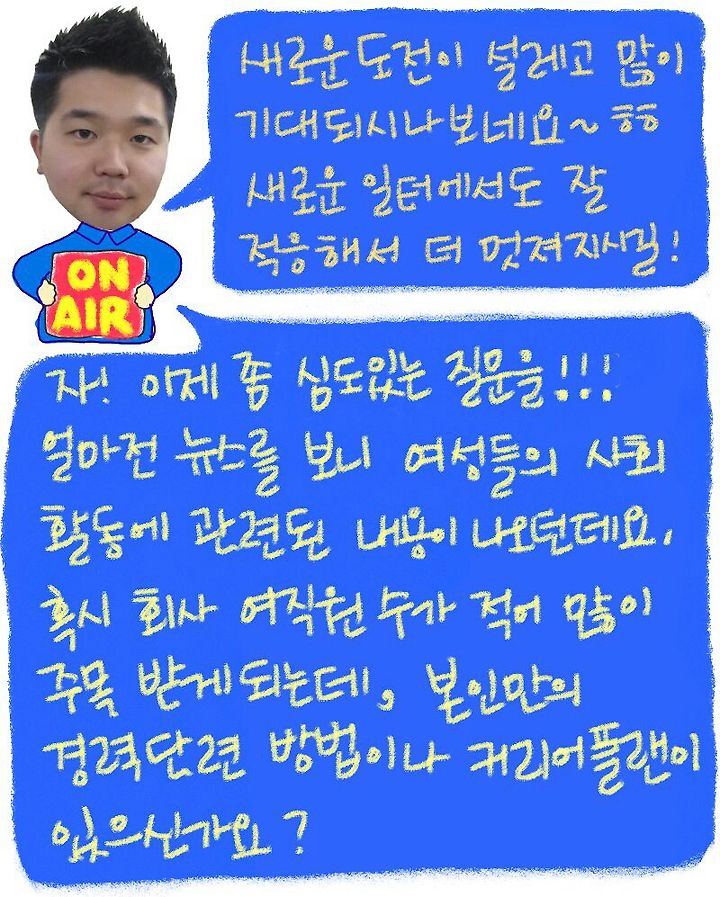 새로운 도전이 설레고 많이
기대되시나보네요~ㅎㅎ
새로운 일터에서도 잘
적응해서 더 멋져지시길!
ON
AIR
자! 이제 좀 심도있는 질문을!!!
얼마전 뉴스를 보니 여성들의 사회
활동에 관련된 내용이 나오던데요.
혹시 회사 여직원 수가 적어 많이
주목 받게되는데, 본인만의
경력단련 방법이나 커리어플랜이
있으신가요?